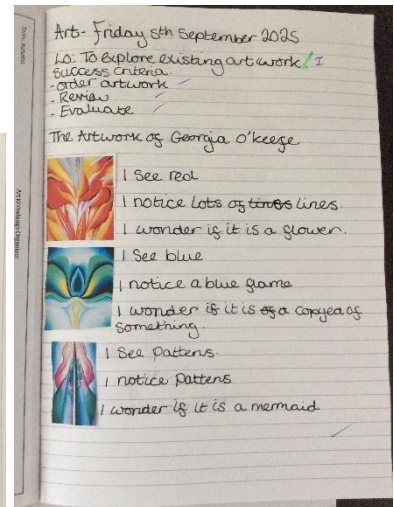 Art - Friday 5th September 2025
LO: To explore existing art work! I
Success Criteria.
- order artwork
- Review
- Evaluate
The Artwork of Georgia O'keefe
I See red
I notice Lots of lines.
I wonder if it is a flower.
I See blue
I notice a blue flame
I wonder if it is a copyed of
something.
I See Pattens.
I notice Pattens
I wonder if it is a mermaid
Art Knowledge Organiser